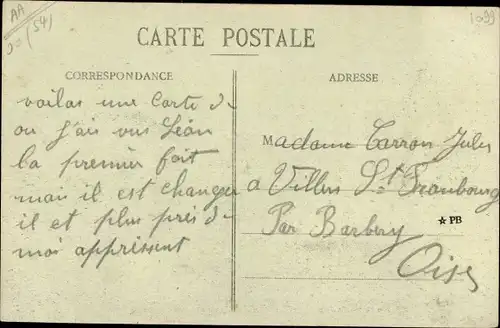 AA
(54)
1099
CARTE POSTALE
CORRESPONDANCE
voilas une Carte de
ou j'ais vus Léon
la premier fait
mais il est changer
il et plus près de
moi appressent
ADRESSE
Madame Carron Jules
a Villers St. Franbourg
Par Barbery
☆PB
Oise